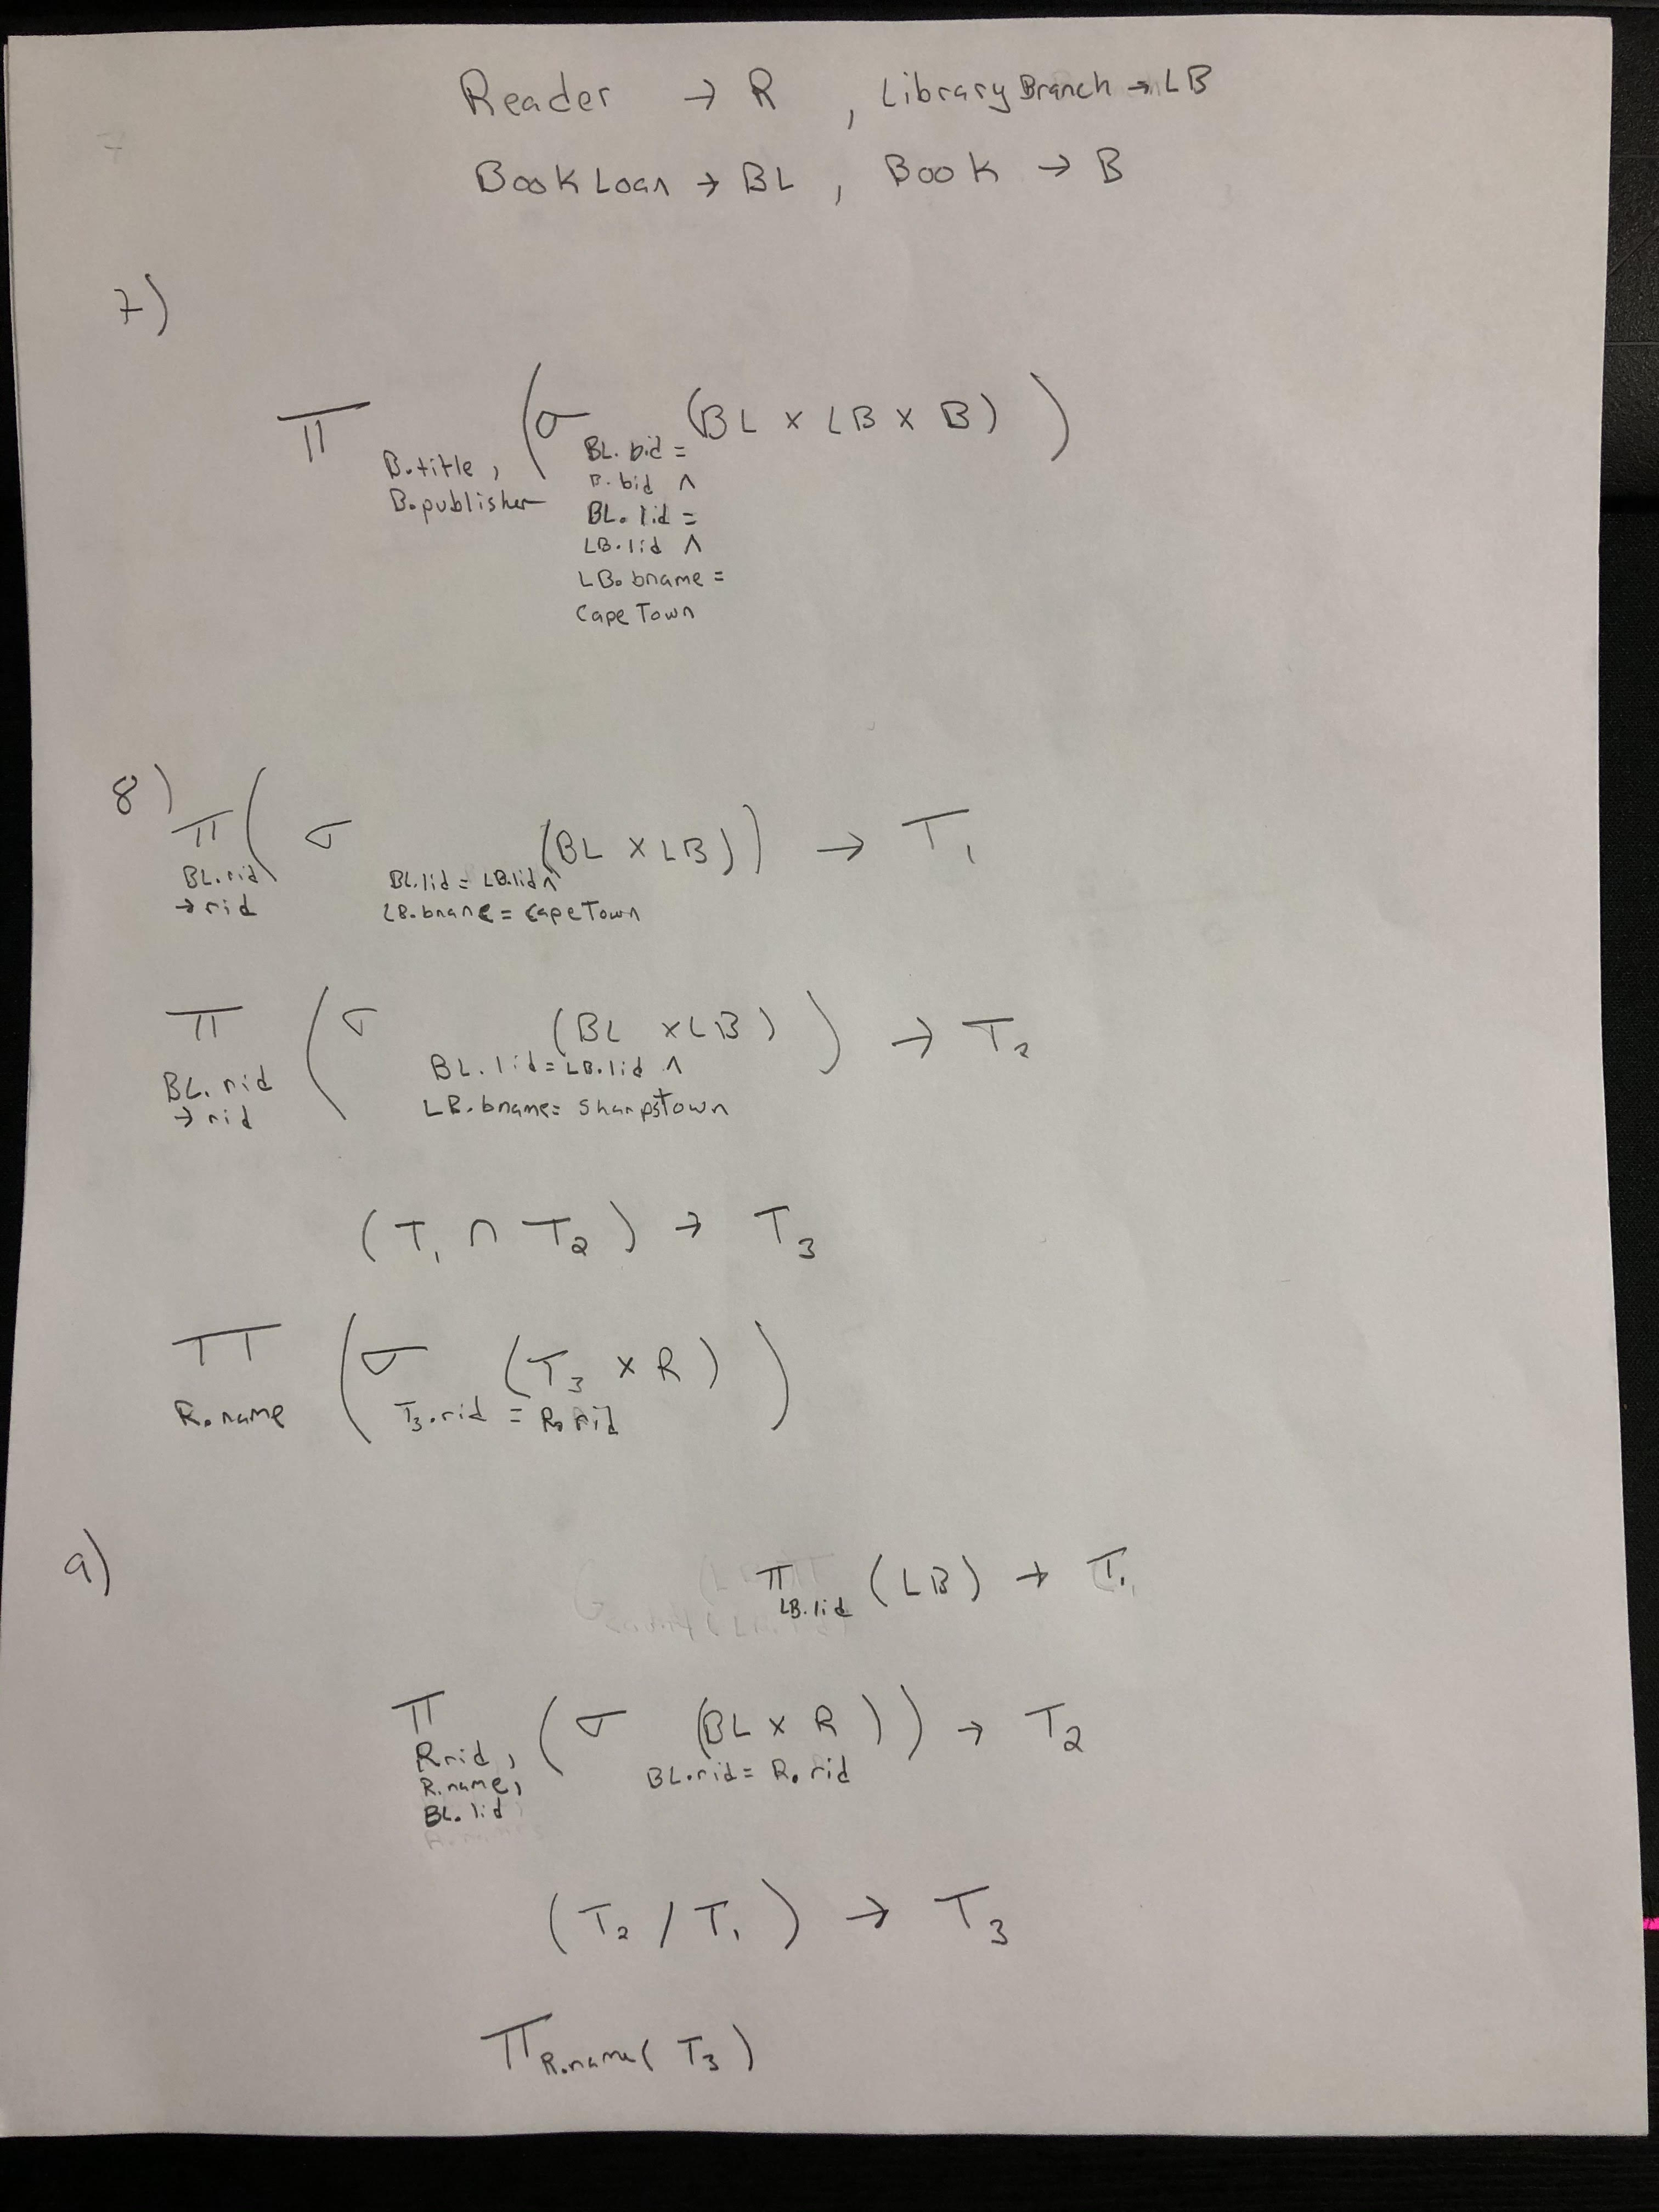 Reader → R , Library Branch → LB
Book Loan → BL , Book → B
7)
π B.title, B.publisher ( σ BL.bid = B.bid ∧ BL.lid = LB.lid ∧ LB.bname = Cape Town (BL × LB × B) )
8)
π BL.rid → rid ( σ BL.lid = LB.lid ∧ LB.bname = Cape Town (BL × LB) ) → T1
π BL.rid → rid ( σ BL.lid = LB.lid ∧ LB.bname = Sharpstown (BL × LB) ) → T2
( T1 ∩ T2 ) → T3
π R.name ( σ T3.rid = R.rid (T3 × R) )
9)
π LB.lid (LB) → T1
π R.rid, R.name, BL.lid ( σ BL.rid = R.rid (BL × R) ) → T2
( T2 / T1 ) → T3
π R.name ( T3 )